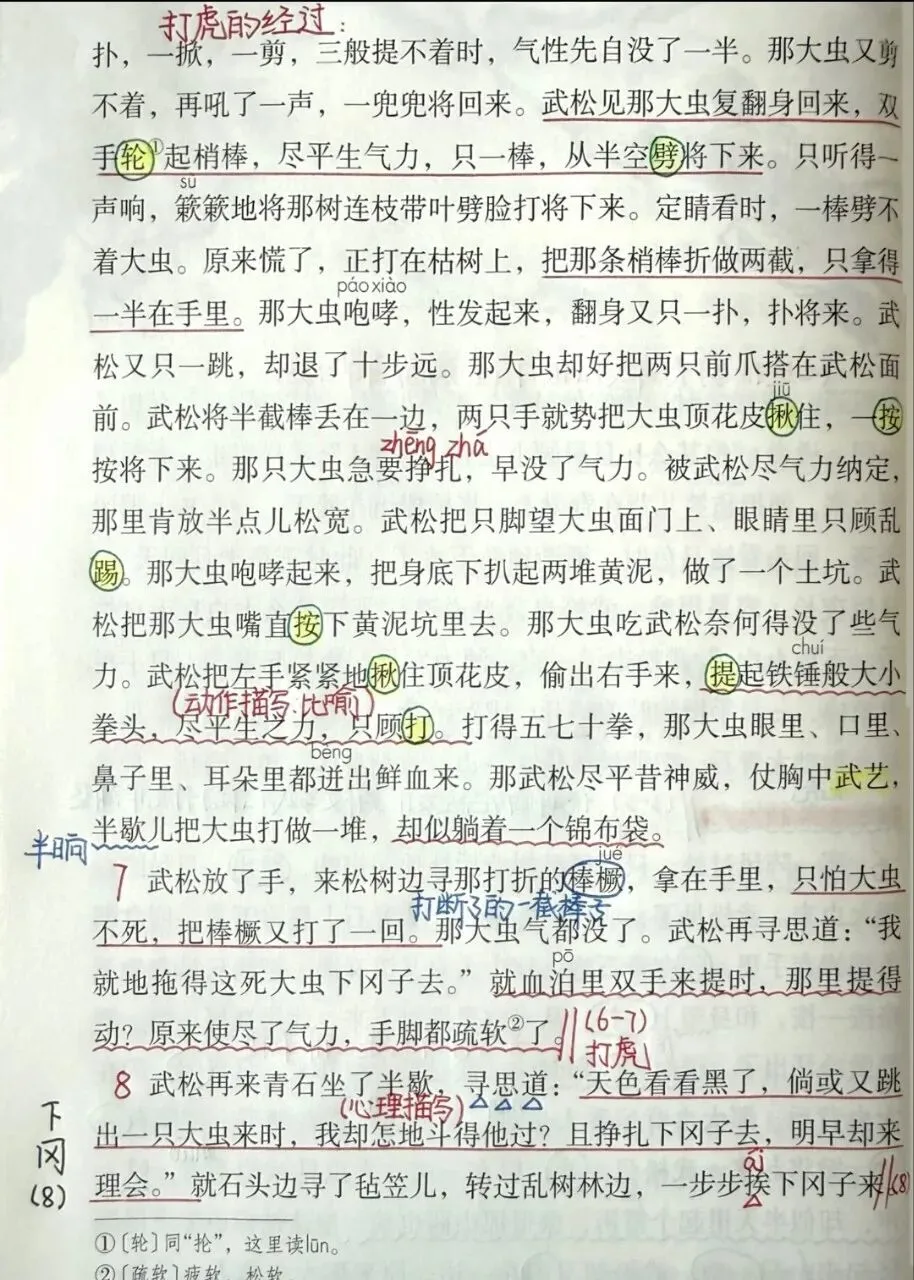 打虎的经过：
扑，一掀，一剪，三般提不着时，气性先自没了一半。那大虫又剪
不着，再吼了一声，一兜兜将回来。武松见那大虫复翻身回来，双
手轮①起梢棒，尽平生气力，只一棒，从半空劈将下来。只听得一
sù
声响，簌簌地将那树连枝带叶劈脸打将下来。定睛看时，一棒劈不
着大虫。原来慌了，正打在枯树上，把那条梢棒折做两截，只拿得
páo xiào
一半在手里。那大虫咆哮，性发起来，翻身又只一扑，扑将来。武
松又只一跳，却退了十步远。那大虫却好把两只前爪搭在武松面
jiū
前。武松将半截棒丢在一边，两只手就势把大虫顶花皮揪住，一按
zhēng zhá
按将下来。那只大虫急要挣扎，早没了气力。被武松尽气力纳定，
那里肯放半点儿松宽。武松把只脚望大虫面门上、眼睛里只顾乱
踢。那大虫咆哮起来，把身底下扒起两堆黄泥，做了一个土坑。武
松把那大虫嘴直按下黄泥坑里去。那大虫吃武松奈何得没了些气
chuí
力。武松把左手紧紧地揪住顶花皮，偷出右手来，提起铁锤般大小
(动作描写.比喻)
拳头，尽平生之力，只顾打。打得五七十拳，那大虫眼里、口里、
bèng
鼻子里、耳朵里都迸出鲜血来。那武松尽平昔神威，仗胸中武艺，
半歇儿把大虫打做一堆，却似躺着一个锦布袋。
半晌
jué
7 武松放了手，来松树边寻那打折的棒橛，拿在手里，只怕大虫
打断了的一截棒子
不死，把棒橛又打了一回。那大虫气都没了。武松再寻思道：“我
pō
就地拖得这死大虫下冈子去。”就血泊里双手来提时，那里提得
动？原来使尽了气力，手脚都疏软②了。
(6-7)
打虎
8 武松再来青石坐了半歇，寻思道：“天色看看黑了，倘或又跳
(心理描写)
出一只大虫来时，我却怎地斗得他过？且挣扎下冈子去，明早却来
ái
理会。”就石头边寻了毡笠儿，转过乱树林边，一步步挨下冈子来
(8)
下冈
(8)
①〔轮〕同“抡”，这里读lūn。
②〔疏软〕疲软、松软